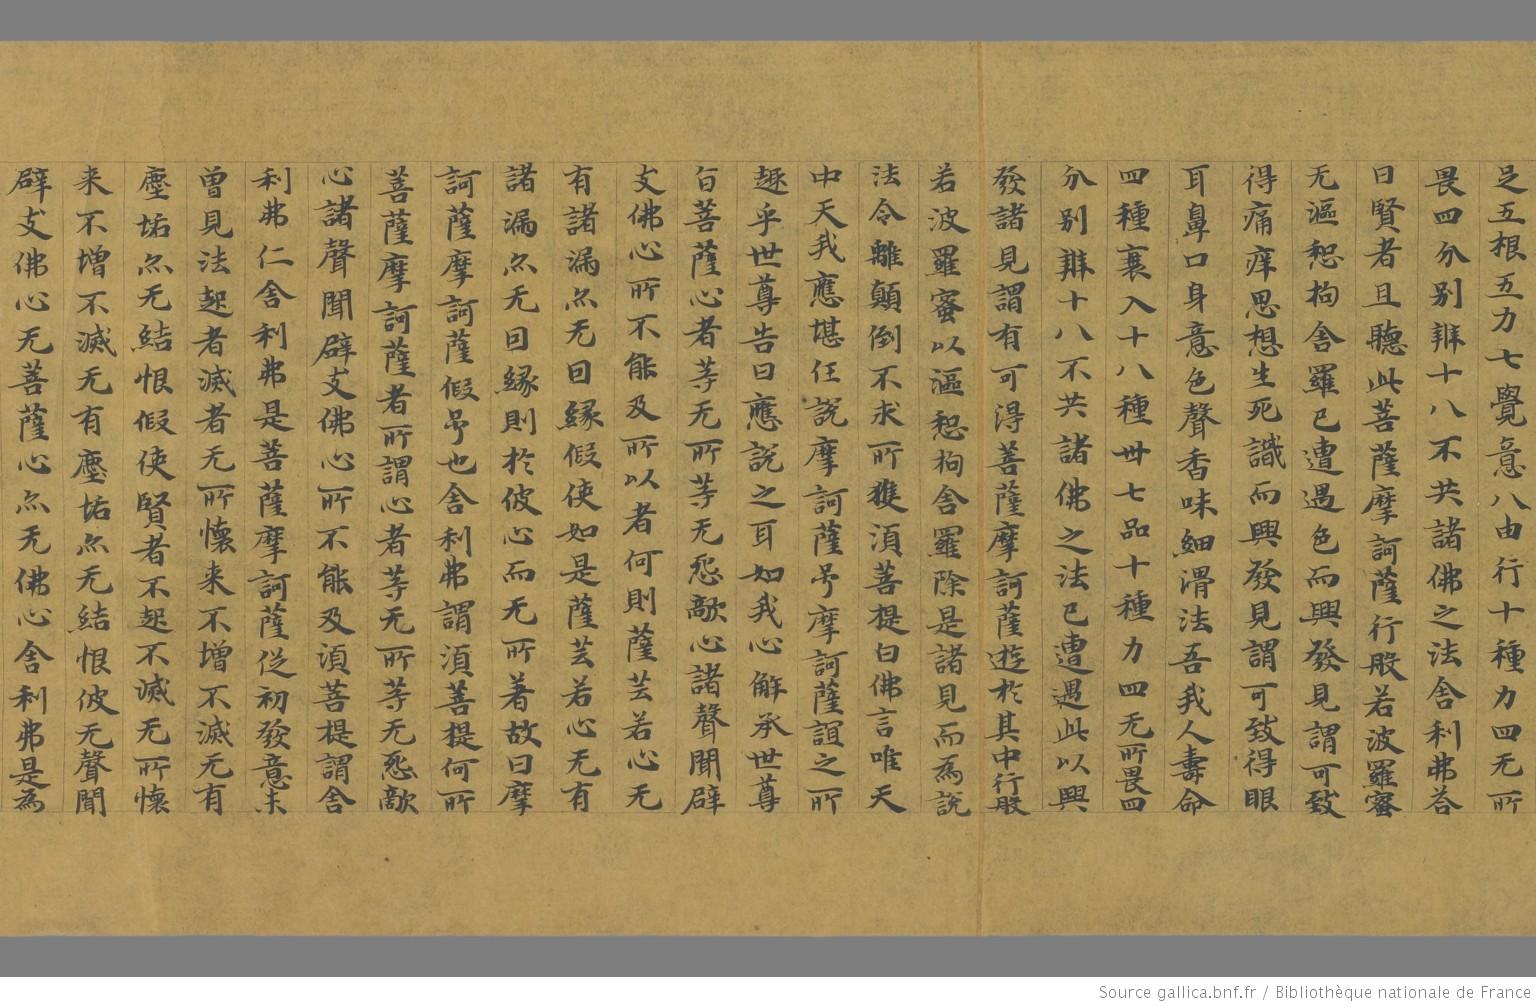 足五根五力七覺意八由行十種力四无所
畏四分别辯十八不共諸佛之法舍利弗荅
曰賢者且聽此菩薩摩訶薩行般若波羅蜜
无漚惒拘舍羅已遭遇色而興發見謂可致
得痛痒思想生死識而興發見謂可致得眼
耳鼻口身意色聲香味細滑法吾我人壽命
四種衰入十八種卅七品十種力四无所畏四
分别辯十八不共諸佛之法已遭遇此以興
發諸見謂有可得菩薩摩訶薩遊於其中行般
若波羅蜜以漚惒拘舍羅除是諸見而為說
法令離顛倒不求所獲湏菩提白佛言唯天
中天我應堪任說摩訶薩号摩訶薩誼之所
趣乎世尊告曰應說之耳如我心解承世尊
旨菩薩心者等无所等无怨敵心諸聲聞辟
支佛心所不能及所以者何則薩芸若心无
有諸漏点无因緣假使如是薩芸若心无有
諸漏点无因緣則於彼心而无所著故曰摩
訶薩摩訶薩假号也舍利弗謂湏菩提何所
菩薩摩訶薩者所謂心者等无所等无怨敵
心諸聲聞辟支佛心所不能及湏菩提謂舍
利弗仁舍利弗是菩薩摩訶薩從初發意未
曾見法起者滅者无所懷来不增不滅无有
塵垢点无結恨假使賢者不起不滅无所懷
来不增不滅无有塵垢点无結恨彼无聲聞
辟支佛心无菩薩心点无佛心舍利弗是為
Source gallica.bnf.fr / Bibliothèque nationale de France